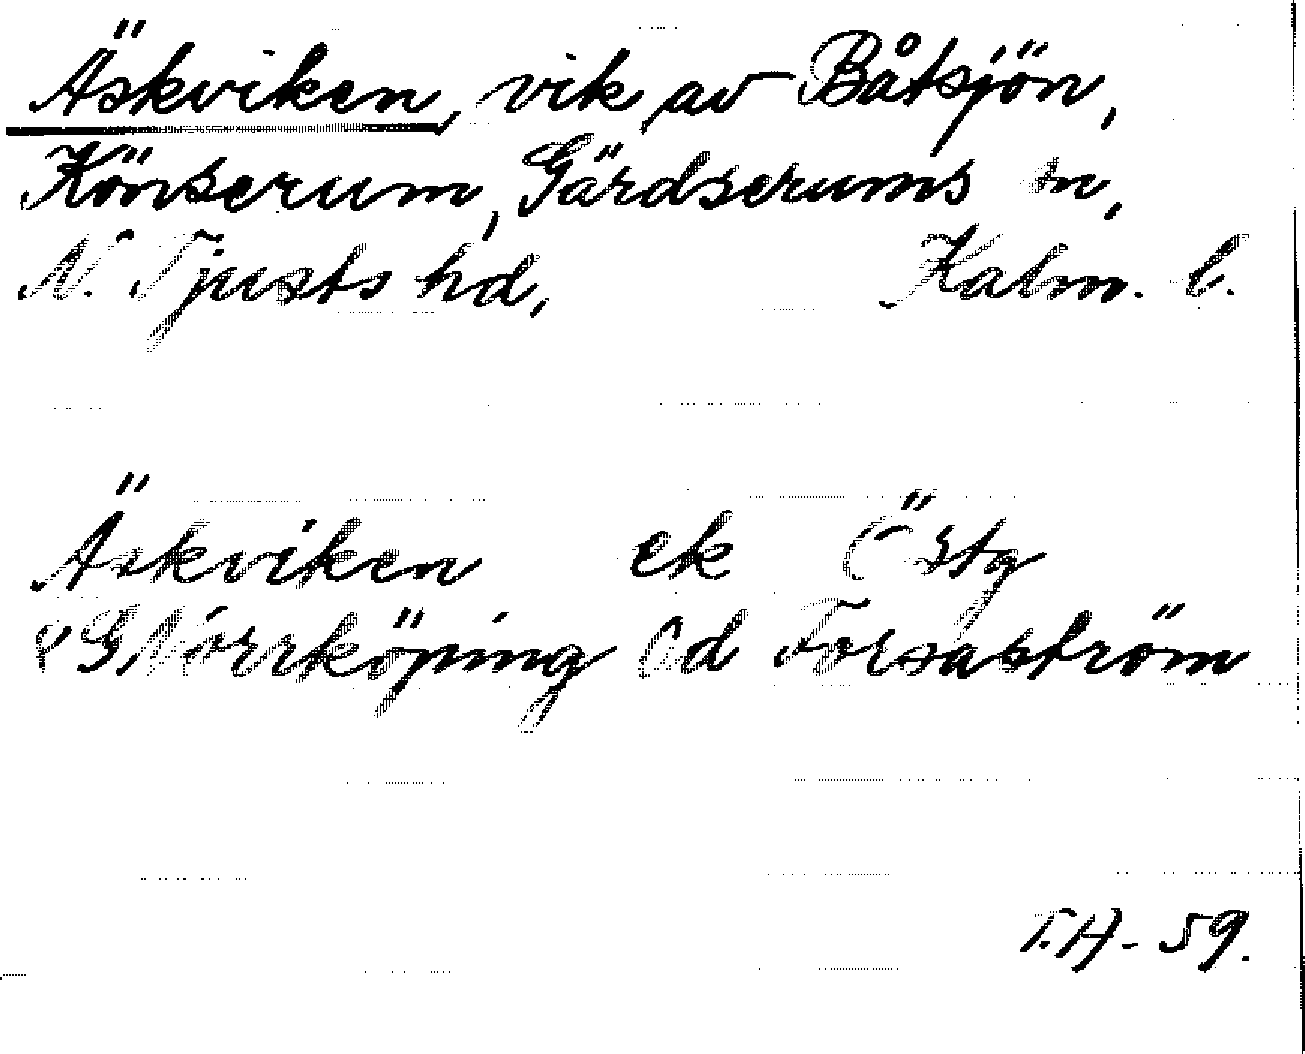 Äskviken, vik av Båtsjön,
Könserum, Gärdserums sn,
N. Tjusts hd, Kalm. l.
Äskviken ek Östg
8 G Norrköping Od Forsaström
T.H- 59.